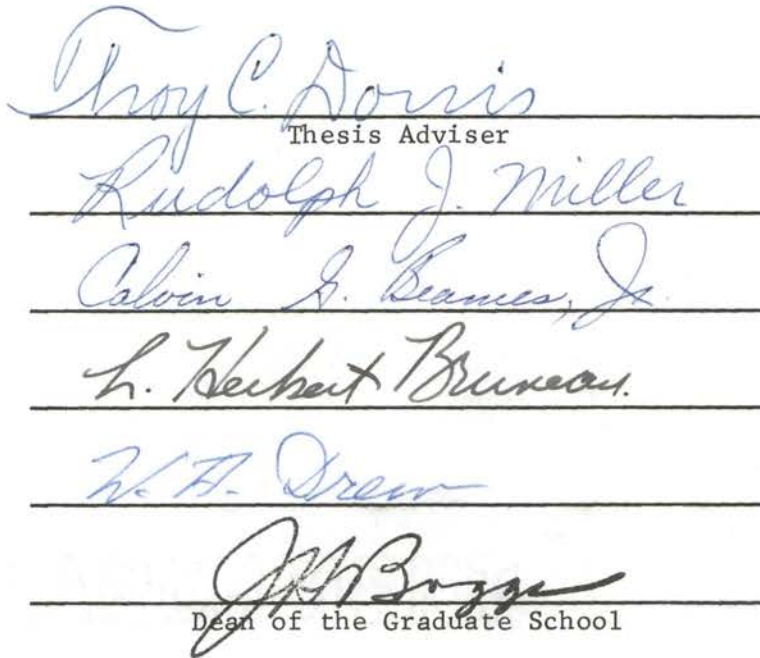 Troy C. Dorris
Thesis Adviser
Rudolph J. Miller
Calvin G. Beames, Jr.
L. Herbert Bruneau.
W. A. Drew
J H Boggs
Dean of the Graduate School